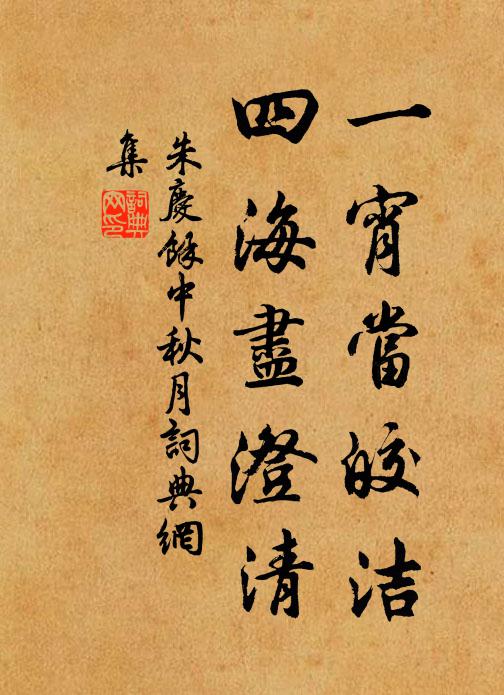 一宵當皎洁
四海盡澄清
朱慶餘中秋月詞典網
集
詞典
网印